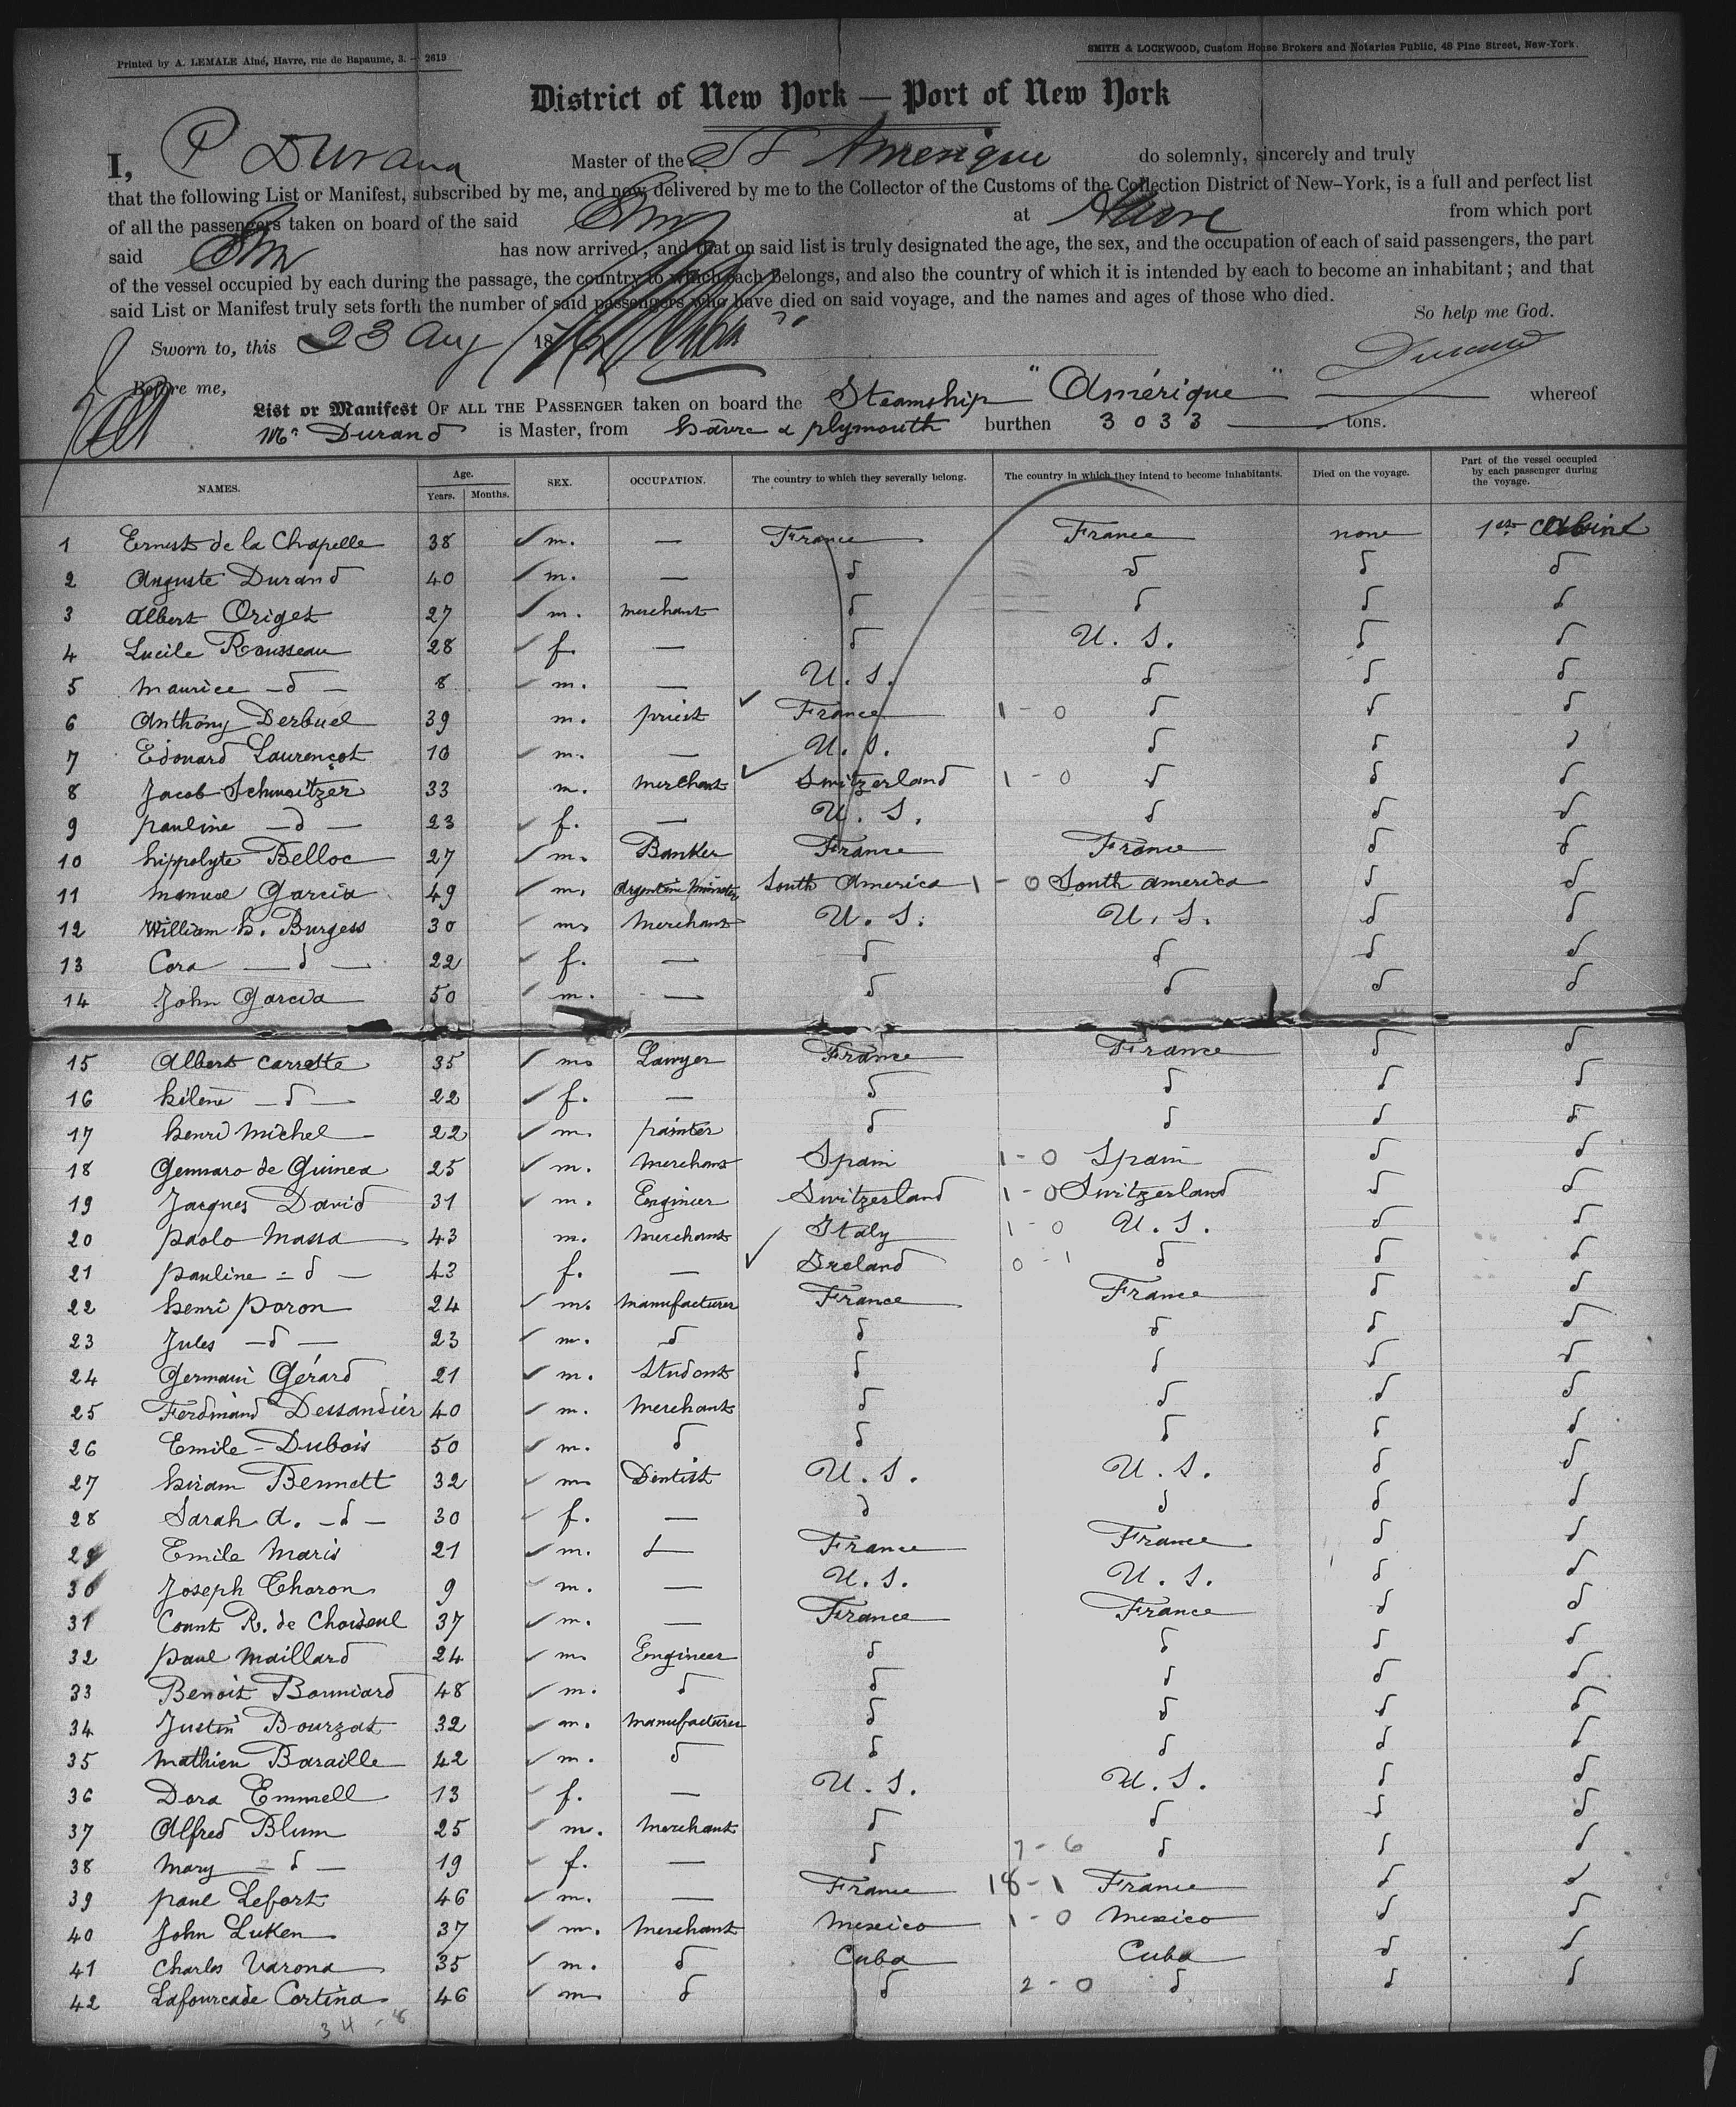 Printed by A. LEMALE Aîné, Havre, rue de Bapaume, 3. — 2619
SMITH & LOCKWOOD, Custom House Brokers and Notaries Public, 48 Pine Street, New-York.
District of New York — Port of New York
I, P Durand Master of the St Amerique do solemnly, sincerely and truly
that the following List or Manifest, subscribed by me, and now delivered by me to the Collector of the Customs of the Collection District of New-York, is a full and perfect list
of all the passengers taken on board of the said Str at Havre from which port
said Str has now arrived; and that on said list is truly designated the age, the sex, and the occupation of each of said passengers, the part
of the vessel occupied by each during the passage, the country to which each belongs, and also the country of which it is intended by each to become an inhabitant; and that
said List or Manifest truly sets forth the number of said passengers who have died on said voyage, and the names and ages of those who died.
So help me God.
Sworn to, this 23 Aug 18
Durand
Before me,
List or Manifest OF ALL THE PASSENGER taken on board the Steamship "Amérique" whereof
Mr Durand is Master, from hâvre & plymouth burthen 3033 tons.
NAMES. Age. Years. Months. SEX. OCCUPATION. The country to which they severally belong. The country in which they intend to become inhabitants. Died on the voyage. Part of the vessel occupied by each passenger during the voyage.
1 Ernest de la Chapelle 38 m. — France France none 1st Cabine
2 Auguste Durand 40 m. — d d d d
3 Albert Origet 27 m. merchant d d d d
4 Lucile Rousseau 28 f. — d U. S. d d
5 maurice — d — 8 m. — U. S. d d d
6 Anthony Derbuel 39 m. priest France 1 - 0 d d d
7 Edouard Laurençot 10 m. — U. S. d d d
8 Jacob Schweitzer 33 m. merchant Switzerland 1 - 0 d d d
9 pauline — d — 23 f. — U. S. d d d
10 hippolyte Belloc 27 m. Banker France France d d
11 manuel Garcia 49 m. Argentine minister South America 1 - 0 South america d d
12 William h. Burgess 30 m. merchant U. S. U. S. d d
13 Cora — d — 22 f. — d d d d
14 John Garcia 50 m. — d d d d
15 Albert Carrette 35 m. Lawyer France France d d
16 hélène — d — 22 f. — d d d d
17 henri michel 22 m. painter d d d d
18 Gennaro de Guinea 25 m. merchant Spain 1 - 0 Spain d d
19 Jacques David 31 m. Engineer Switzerland 1 - 0 Switzerland d d
20 paolo massa 43 m. merchant Italy 1 - 0 U. S. d d
21 pauline — d — 43 f. — Ireland 0 - 1 d d d
22 henri poron 24 m. manufacturer France France d d
23 Jules — d — 23 m. d d d d d
24 Germain Gérard 21 m. Student d d d d
25 Ferdinand Dessandier 40 m. merchant d d d d
26 Emile Dubois 50 m. d d d d d
27 hiram Bennett 32 m. Dentist U. S. U. S. d d
28 Sarah A. — d — 30 f. — d d d d
29 Emile Maris 21 m. — France France d d
30 Joseph Charon 9 m. — U. S. U. S. d d
31 Count R. de Choiseul 37 m. — France France d d
32 paul maillard 24 m. Engineer d d d d
33 Benoit Bonniard 48 m. d d d d d
34 Justin Bourzat 32 m. manufacturer d d d d
35 mathieu Baraille 42 m. d d d d d
36 Dora Emmell 13 f. — U. S. U. S. d d
37 Alfred Blum 25 m. merchant d d d d
38 mary — d — 19 f. — d 7 - 6 d d d
39 paul Lefort 46 m. — France 18 - 1 France d d
40 John Luken 37 m. merchant mexico 1 - 0 mexico d d
41 Charles Varona 35 m. d Cuba Cuba d d
42 Lafourcade Cortina 46 m. d d 2 - 0 d d d
34 - 8